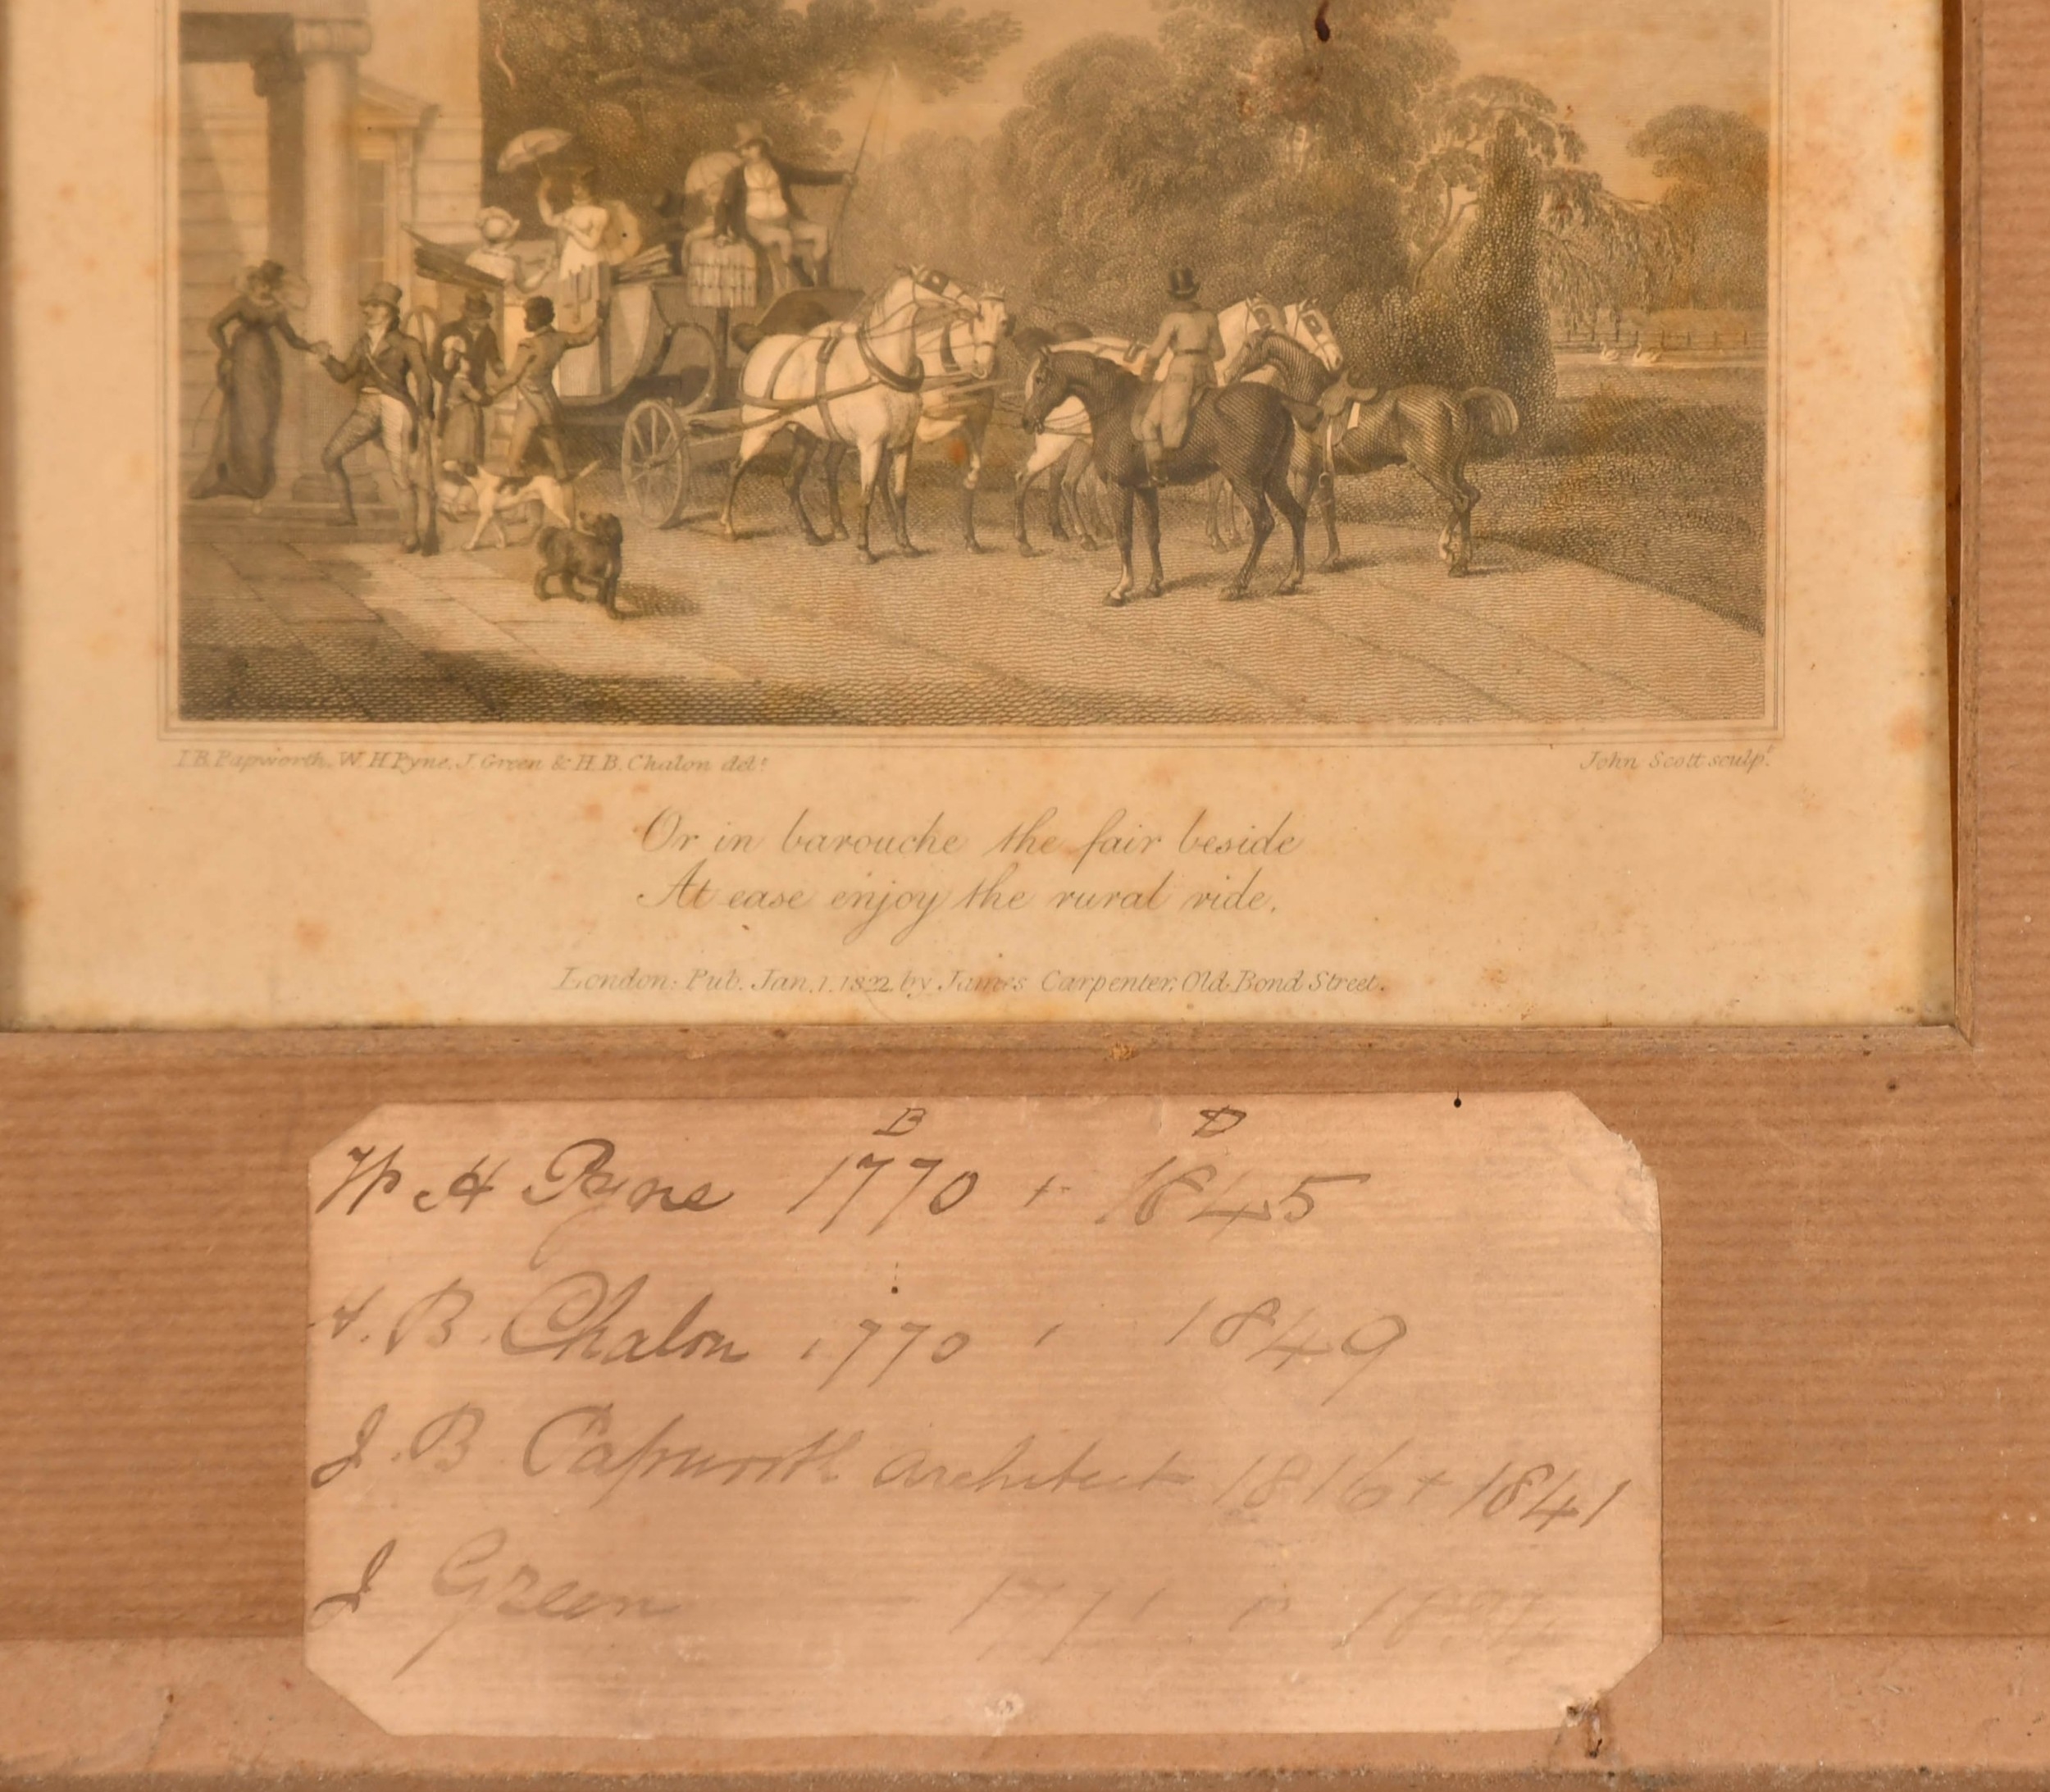 I.B. Papworth, W.H. Pyne, J. Green & H.B. Chalon delt.
John Scott sculpt.
Or in barouche the fair beside
At ease enjoy the rural ride.
London: Pub. Jan. 1. 1822 by James Carpenter, Old Bond Street.
B D
W H Pyne 1770 + 1845
H. B. Chalon 1770 1849
J. B. Papworth Architect 1816 + 1841
J Green 1771